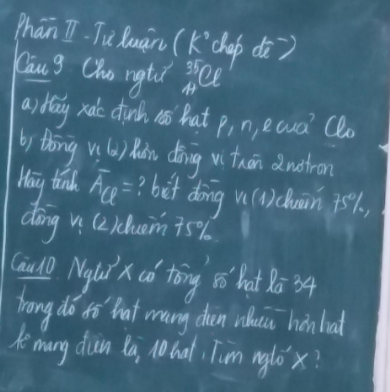 Phần II - Tự luận (K° chép đề)
Câu 9 Cho ngtử ³⁵₁₇Cl
a) Hãy xác định số hạt p, n, e của Clo
b) Đồng vị (2) hơn đồng vị trên 2 nơtron
Hãy tính Ā Cl = ? biết đồng vị (1) chiếm 75%,
đồng vị (2) chiếm 75%
Câu 10. Ngtử X có tổng số hạt là 34
trong đó số hạt mang điện nhiều hơn hạt
k mang điện là 10 hạt. Tìm ngtố X?